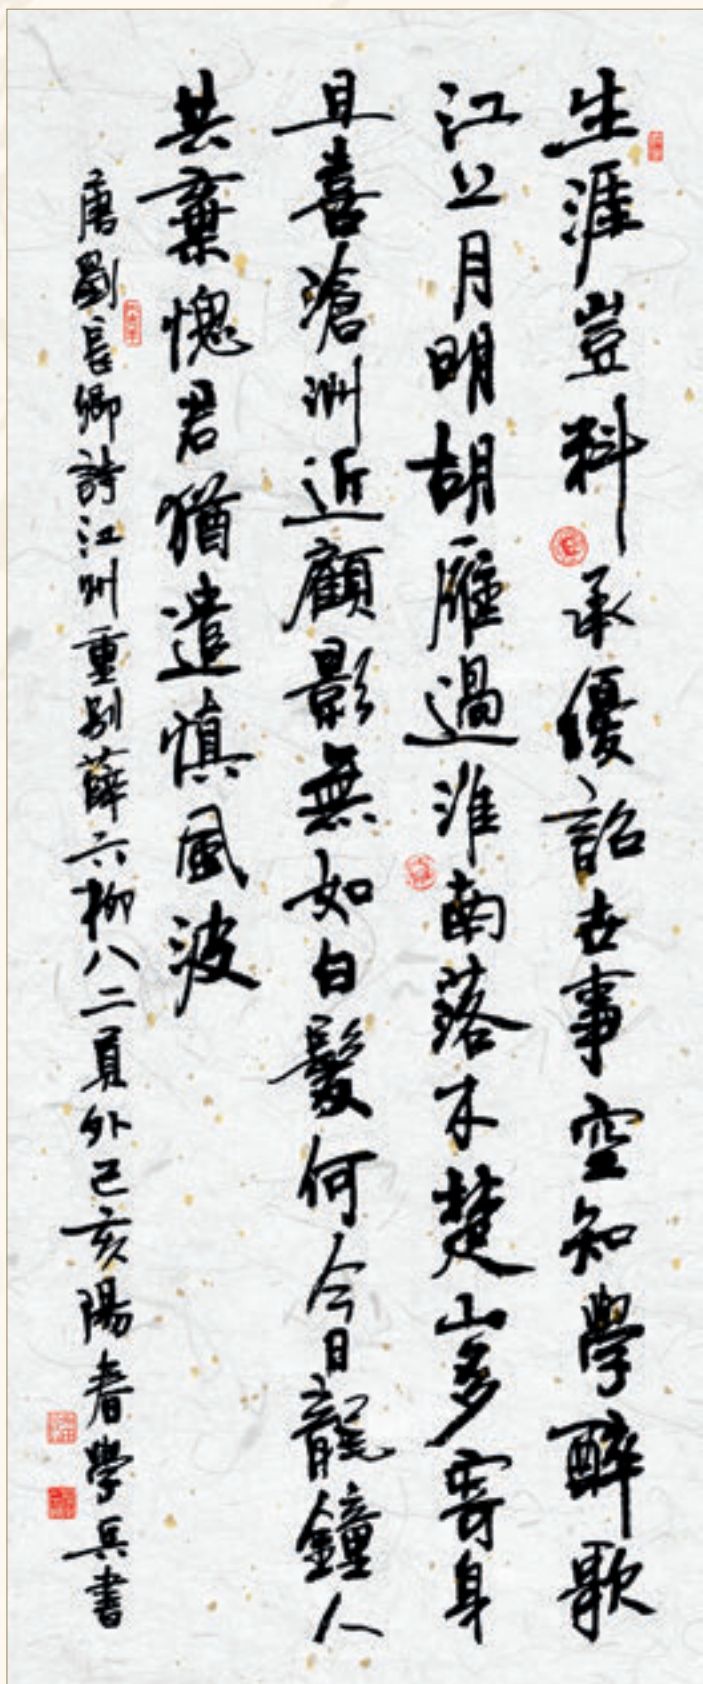 生涯豈料承優詔世事空知學醉歌
江上月明胡雁過淮南落木楚山多寄身
且喜滄洲近顧影無如白髮何今日龍鐘人
共棄愧君猶遣慎風波
唐劉長卿詩江州重別薛六柳八二員外己亥陽春學兵書